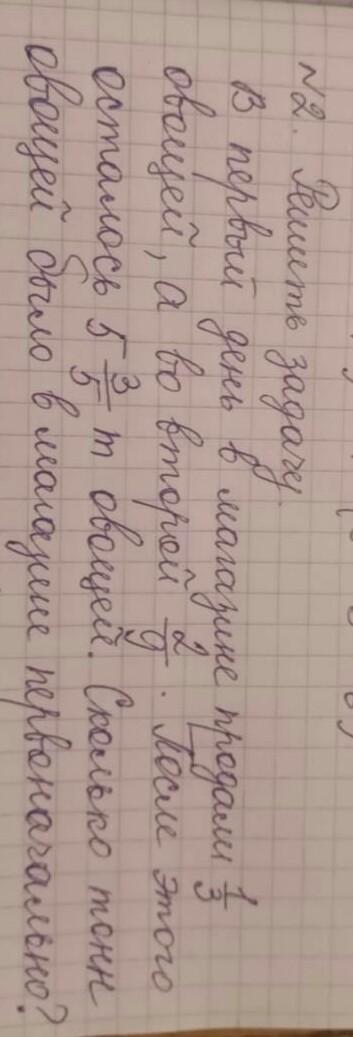 N2. Решить задачу.
В первый день в магазине продали 1/3
овощей, а во второй 2/9. После этого
осталось 5 3/5 т овощей. Сколько тонн
овощей было в магазине первоначально?